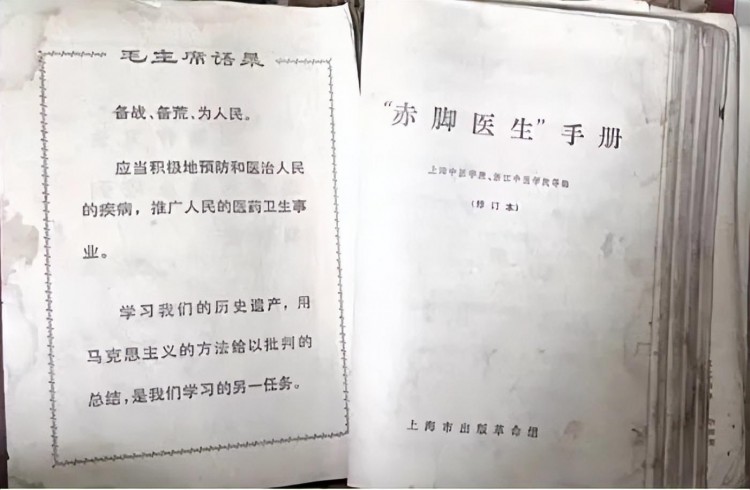 毛主席语录
备战、备荒、为人民。
应当积极地预防和医治人民
的疾病，推广人民的医药卫生事
业。
学习我们的历史遗产，用
马克思主义的方法给以批判的
总结，是我们学习的另一任务。
“赤脚医生”手册
上海中医学院、浙江中医学院等编
（修订本）
上海市出版革命组